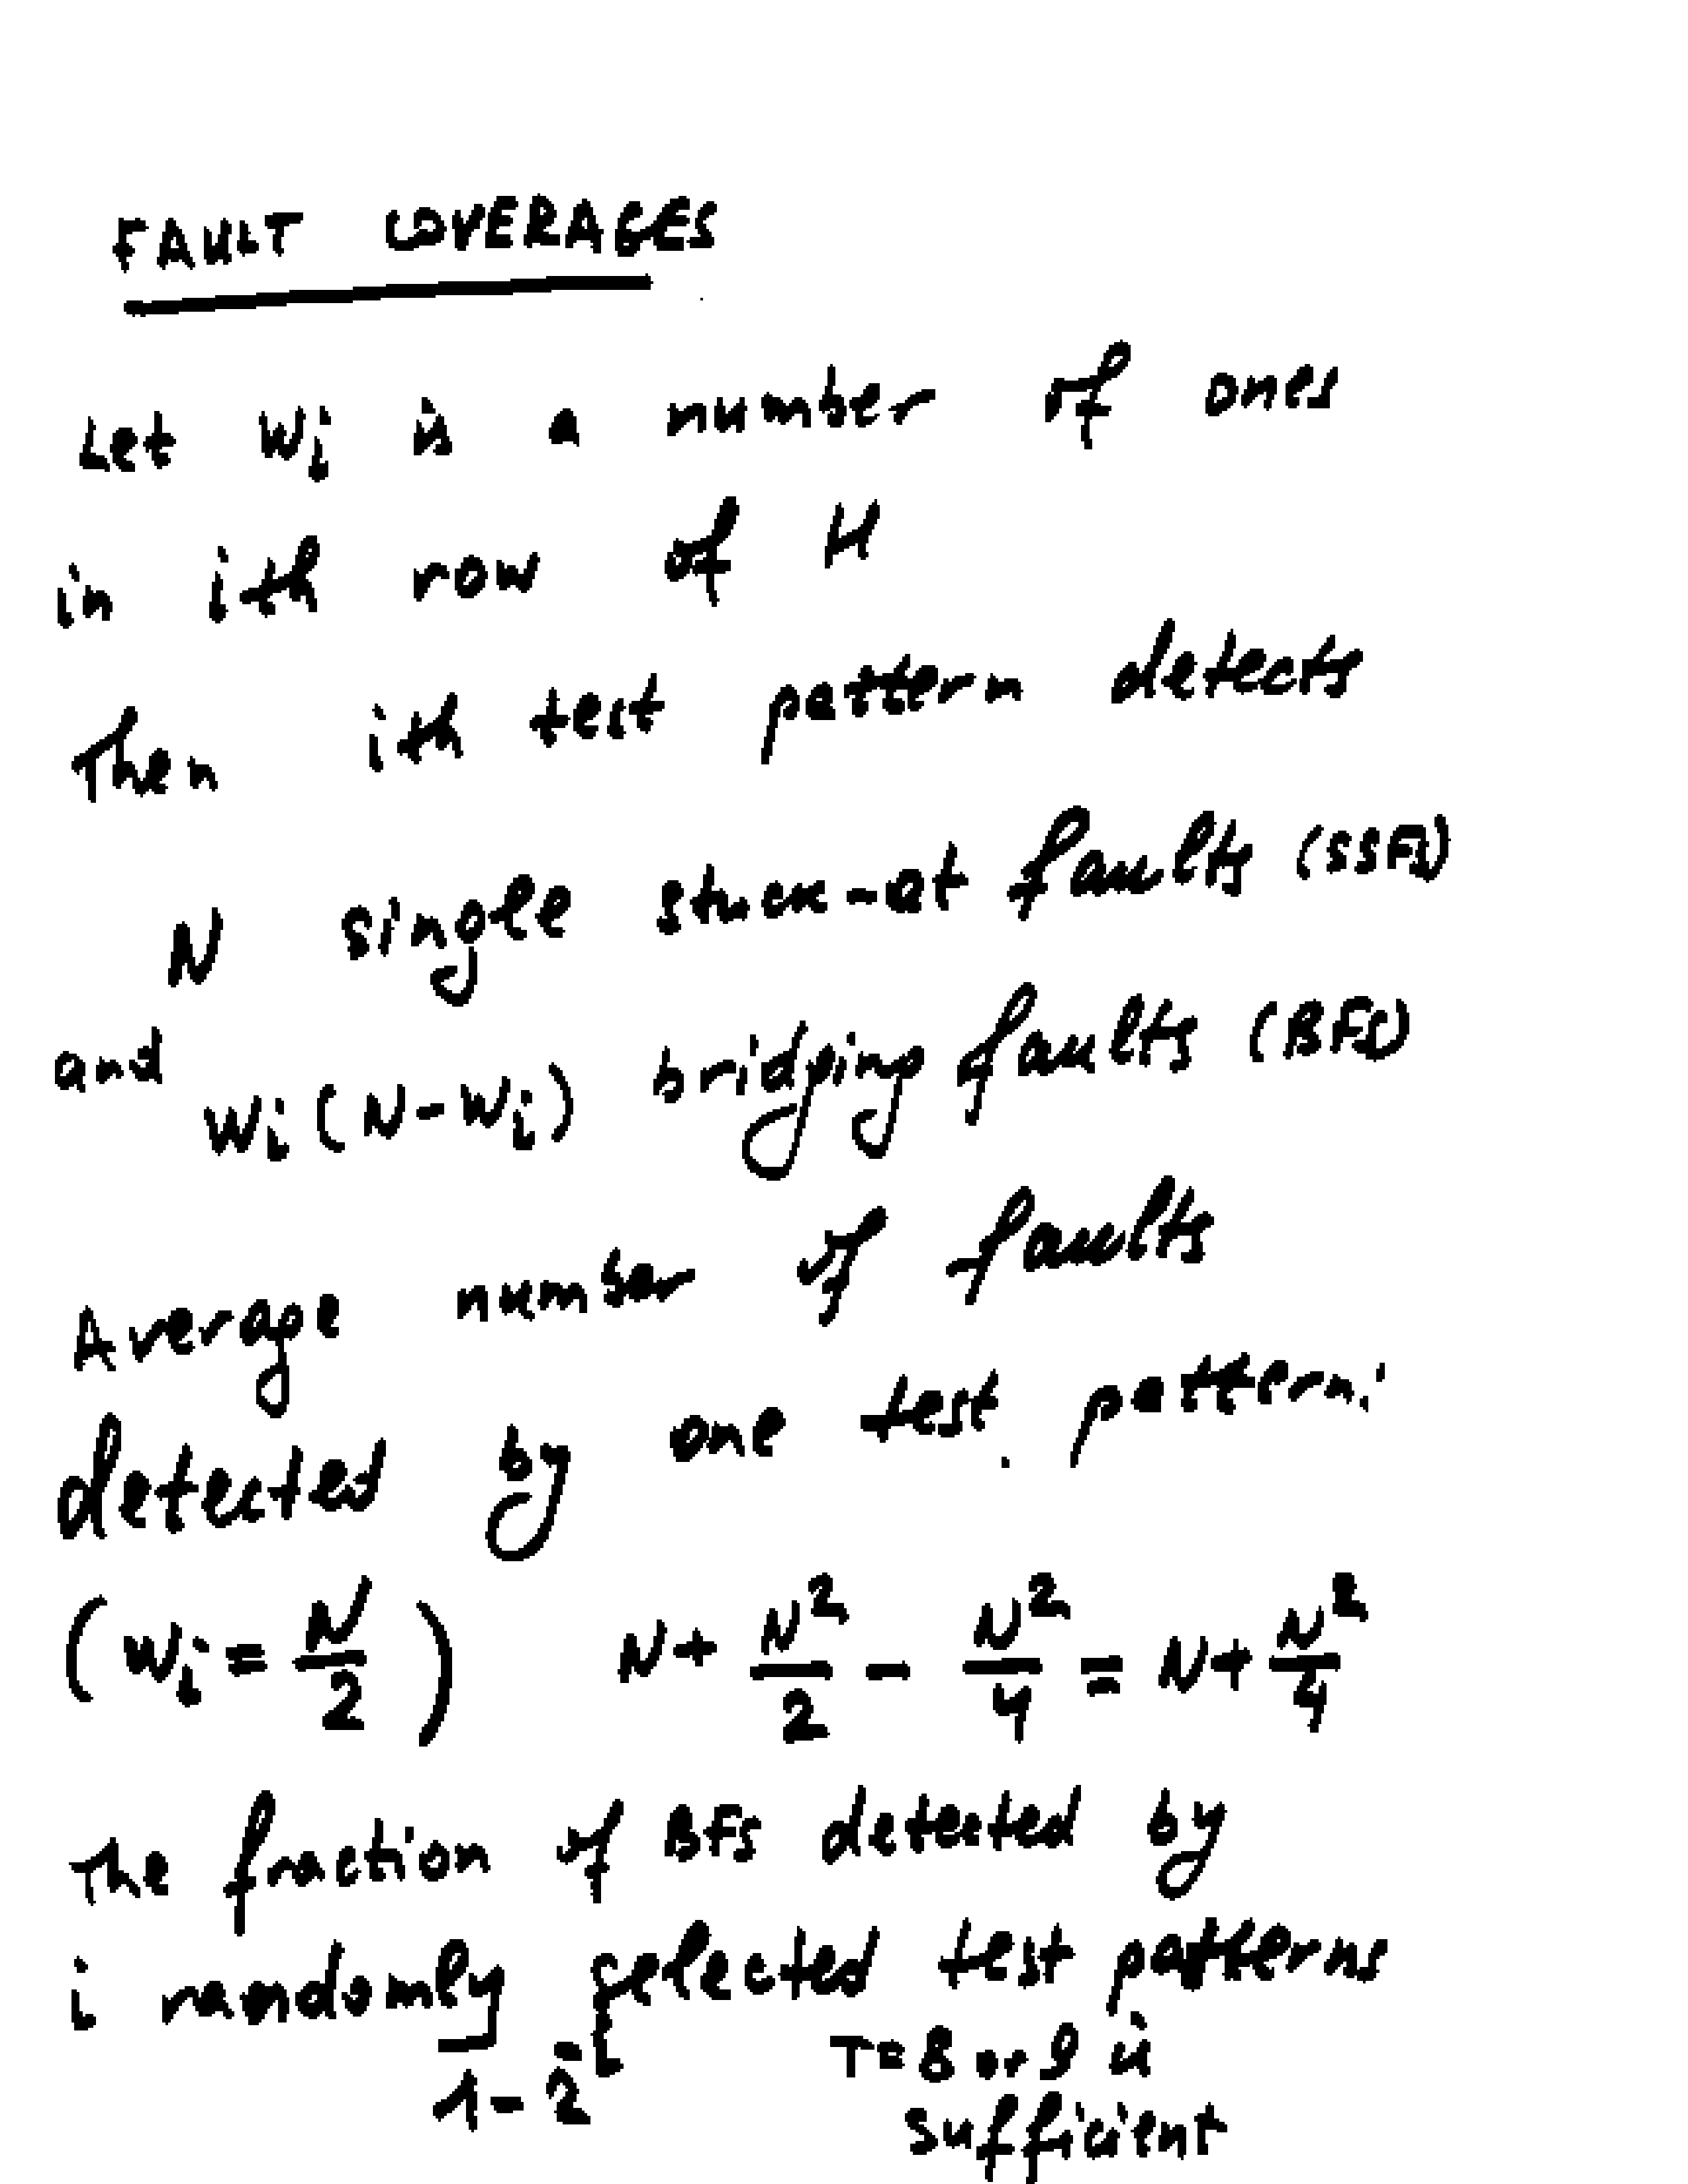 FAULT COVERAGES
Let Wi is a number of ones
in ith row of H
Then ith test pattern detects
N single stuck-at faults (SSFs)
and Wi(N-Wi) bridging faults (BFs)
Average number of faults
detected by one test pattern:
(Wi = N/2) N + N²/2 - N²/4 = N + N²/4
The fraction of BFs detected by
i randomly selected test patterns
1 - 2^-i T=8 or 9 is
sufficient